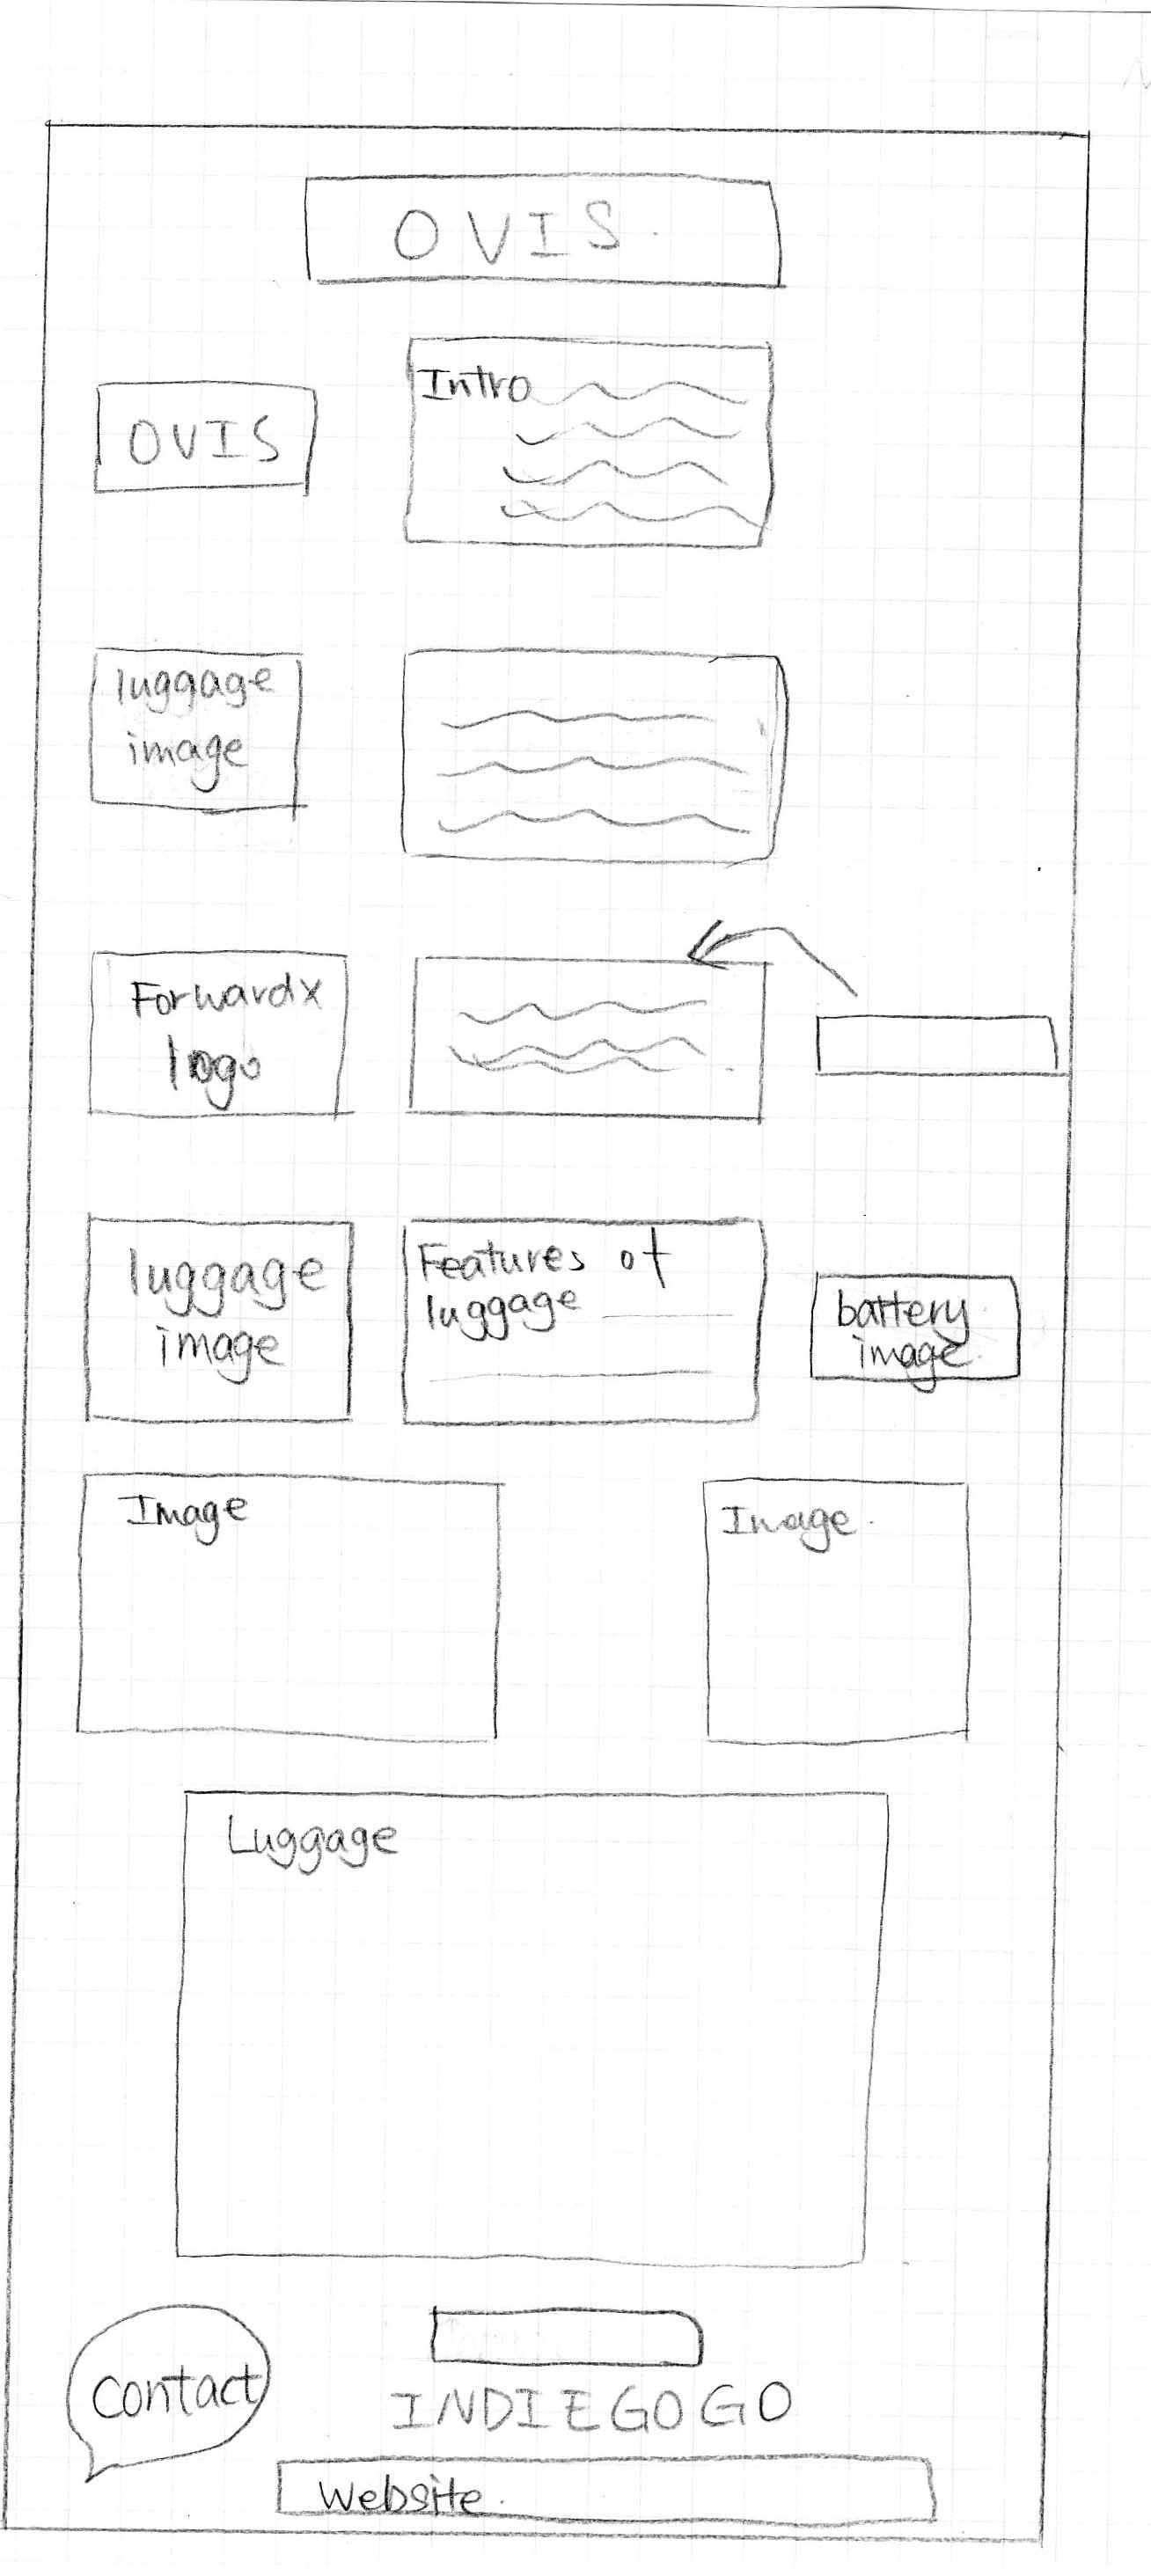 OVIS.
Intro
OVIS
luggage
image
Forwardx
logo
luggage
image
Features of
luggage
battery
image.
Image
Image.
Luggage
Contact
INDIEGOGO
Website.